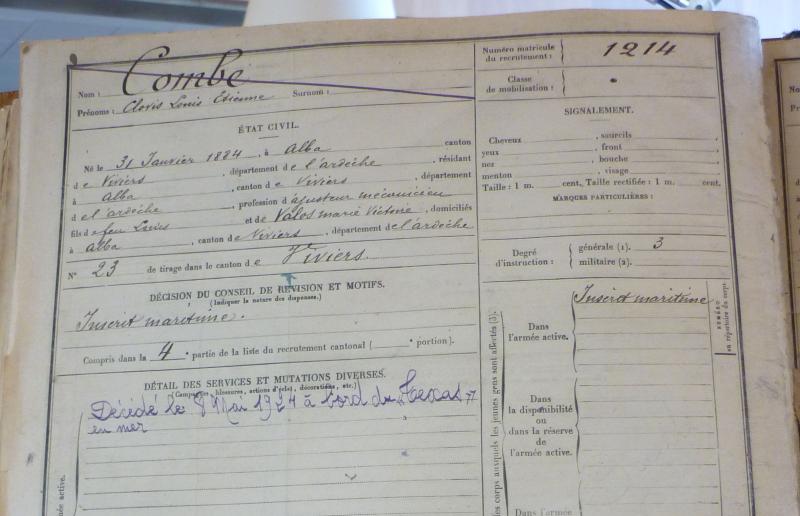 Nom : Combe
Prénoms : Clovis Louis Etienne Surnom :
ÉTAT CIVIL.
Né le 31 Janvier 1884, à Alba canton
de Viviers, département de l'ardèche, résidant
à Alba, canton de Viviers, département
de l'ardèche, profession d'ajusteur mécanicien
fils de feu Louis et de Valos marie Victoire, domiciliés
à Alba, canton de Viviers, département de l'ardèche
N° 23 de tirage dans le canton de Viviers.
DÉCISION DU CONSEIL DE RÉVISION ET MOTIFS.
(Indiquer la nature des dispenses.)
Inscrit maritime.
Compris dans la 4e partie de la liste du recrutement cantonal ( e portion).
DÉTAIL DES SERVICES ET MUTATIONS DIVERSES.
(Campagnes, blessures, actions d'éclat, décorations, etc.)
Décédé le 8 Mai 1924 à bord du "Texas"
en mer
armée active.
Numéro matricule du recrutement : 1214
Classe de mobilisation :
SIGNALEMENT.
Cheveux , sourcils
yeux , front
nez , bouche
menton , visage
Taille : 1 m. cent., Taille rectifiée : 1 m. cent.
MARQUES PARTICULIÈRES :
Degré d'instruction : générale (1). 3
militaire (2).
corps auxquels les jeunes gens sont affectés (3).
Dans
l'armée active.
Inscrit maritime
NUMÉRO
au répertoire du corps
Dans
la disponibilité
ou
dans la réserve
de
l'armée active.
Dans l'armée